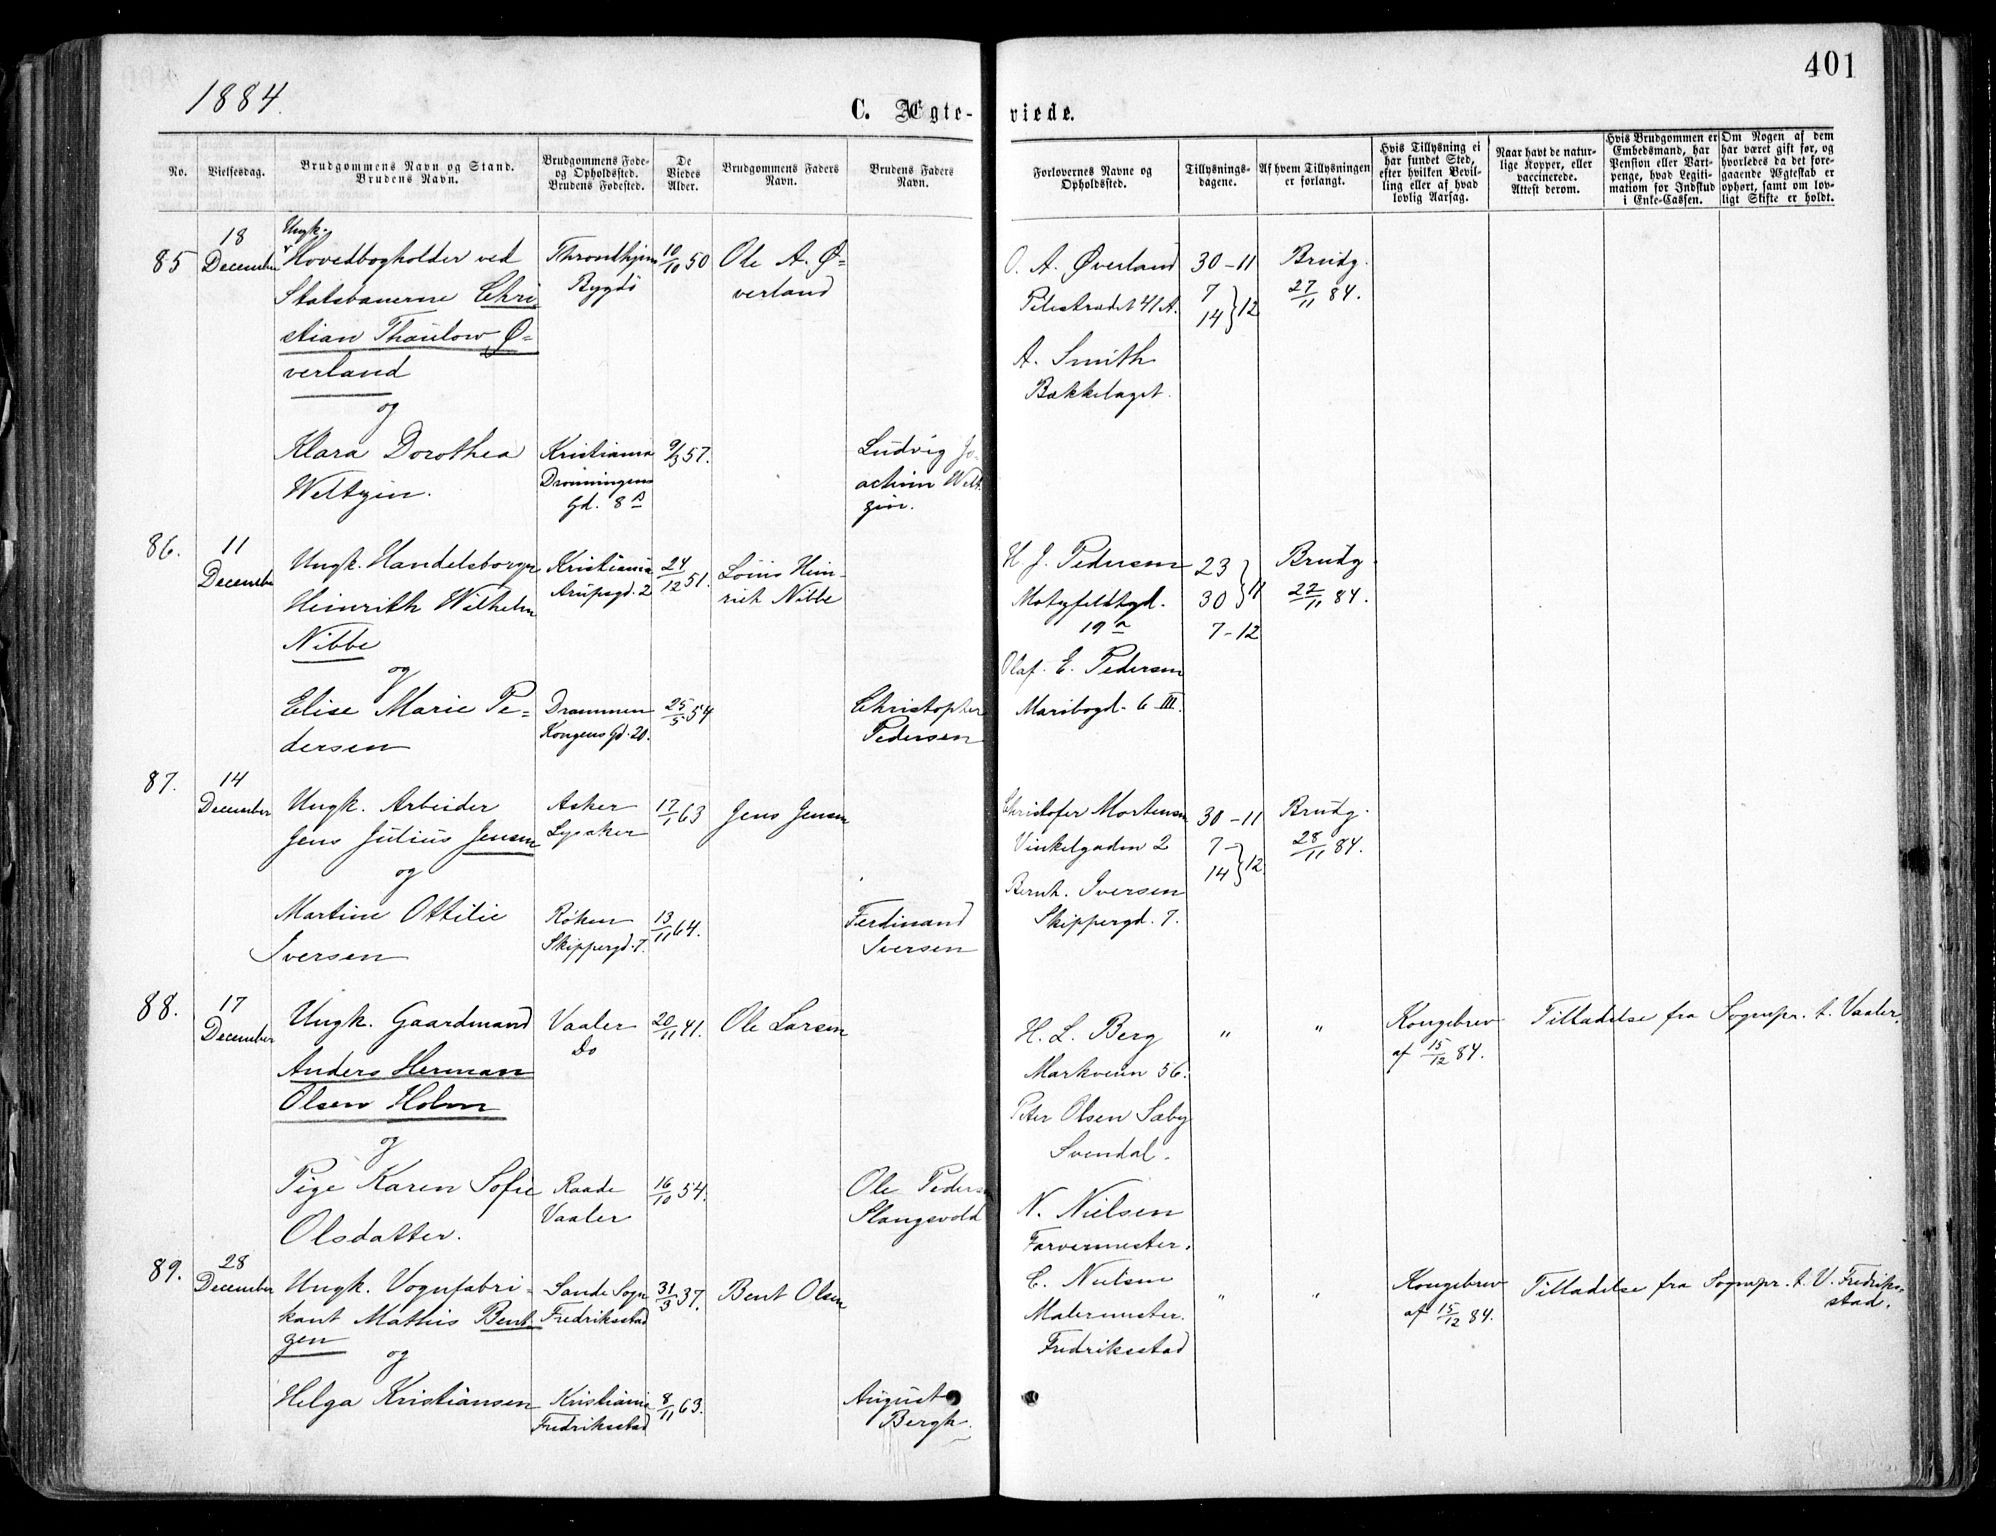 401
1884.
C. Ægte-
viede.
No.
Vielsesdag.
Brudgommens Navn og Stand.
Brudens Navn.
Brudgommens Føde-
og Opholdssted.
Brudens Fødested.
De
Viedes
Alder.
Brudgommens Faders
Navn.
Brudens Faders
Navn.
Forlovernes Navne og
Opholdssted.
Tillysnings-
dagene.
Af hvem Tillysningen
er forlangt.
Hvis Tillysning ei
har fundet Sted,
efter hvilken Bevil-
ling eller af hvad
lovlig Aarsag.
Naar havt de natur-
lige Kopper, eller
vaccinerede.
Attest derom.
Hvis Brudgommen er
Embedsmand, har
Pension eller Vart-
penge, hvad Legiti-
mation for Indskud
i Enke-Cassen.
Om Nogen af dem
har været gift før, og
hvorledes da det fore-
gaaende Ægteskab er
ophørt, samt om lov-
ligt Skifte er holdt.
85 18 December
Ungk.
Hovedbogholder ved
Statsbanerne Chri-
stian Thaulow Ø-
verland
og
Klara Dorothea
Weltzin.
Throndhjem
Bygdø
10/10 50
Ole A. Ø-
verland
Kristiania
Dronningens
Gd. 8 B
9/3 57.
Ludvig Jo-
achim Welt-
zin.
O. A. Øverland
Pilestrædet 41 A.
A. Smith
Bækkelaget.
30-11
7
14 } 12
Brudg.
27/11 84.
86. 11 December
Ungk. Handelsborger
Heinrith Wilhelm
Nibbe
og
Elise Marie Pe-
dersen
Kristiania
Arupsgd. 2
24/12 51.
Louis Hein-
rich Nibbe
Drammen
Kongens Gd. 20.
25/5 54
Christopher
Pedersen
H. J. Pedersen
Motzfeldtgd.
19 a
Olaf. E. Pedersen
Maribogd. 6 III.
23
30 } 11
7-12
Brudg.
22/11 84.
87. 14 December
Ungk. Arbeider
Jens Julius Jensen
og
Martine Ottilie
Iversen
Asker
Lysaker
17/1 63
Jens Jensen
Røken
Skippergd. 7.
13/11 64.
Ferdinand
Iversen
Christofer Mortensen
Vinkelgaden 2
Bernh. Iversen
Skippergd. 7.
30-11
7-
14 } 12
Brudg.
28/11 84.
88. 17 December
Ungk. Gaardmand
Anders Herman
Olsen Holm
og
Pige Karen Sofie
Olsdatter.
Vaaler
Do
20/11 41.
Ole Larsen
Raade
Vaaler
16/10 54.
Ole Pedersen
Slangsvold
H. L. Berg
Markveien 56.
Peter Olsen Sæby
Svendal.
" "
Kongebrev
af 15/12 84.
Tilladelse fra Sognepr. t. Vaaler.
89. 28 December
Ungk. Vognfabri-
kant Mathis Bent-
zen
og
Helga Kristiansen
Sande Sogn
Fredriksstad
31/3 37.
Bent Olsen
Kristiania
Fredriksstad
8/11 63.
August
Bergh.
N. Nielsen
Farvermester.
C. Nielsen
Malermester.
Fredriksstad
" "
Kongebrev
af 15/12 84.
Tilladelse fra Sognepr. t. V. Fredriks-
stad.